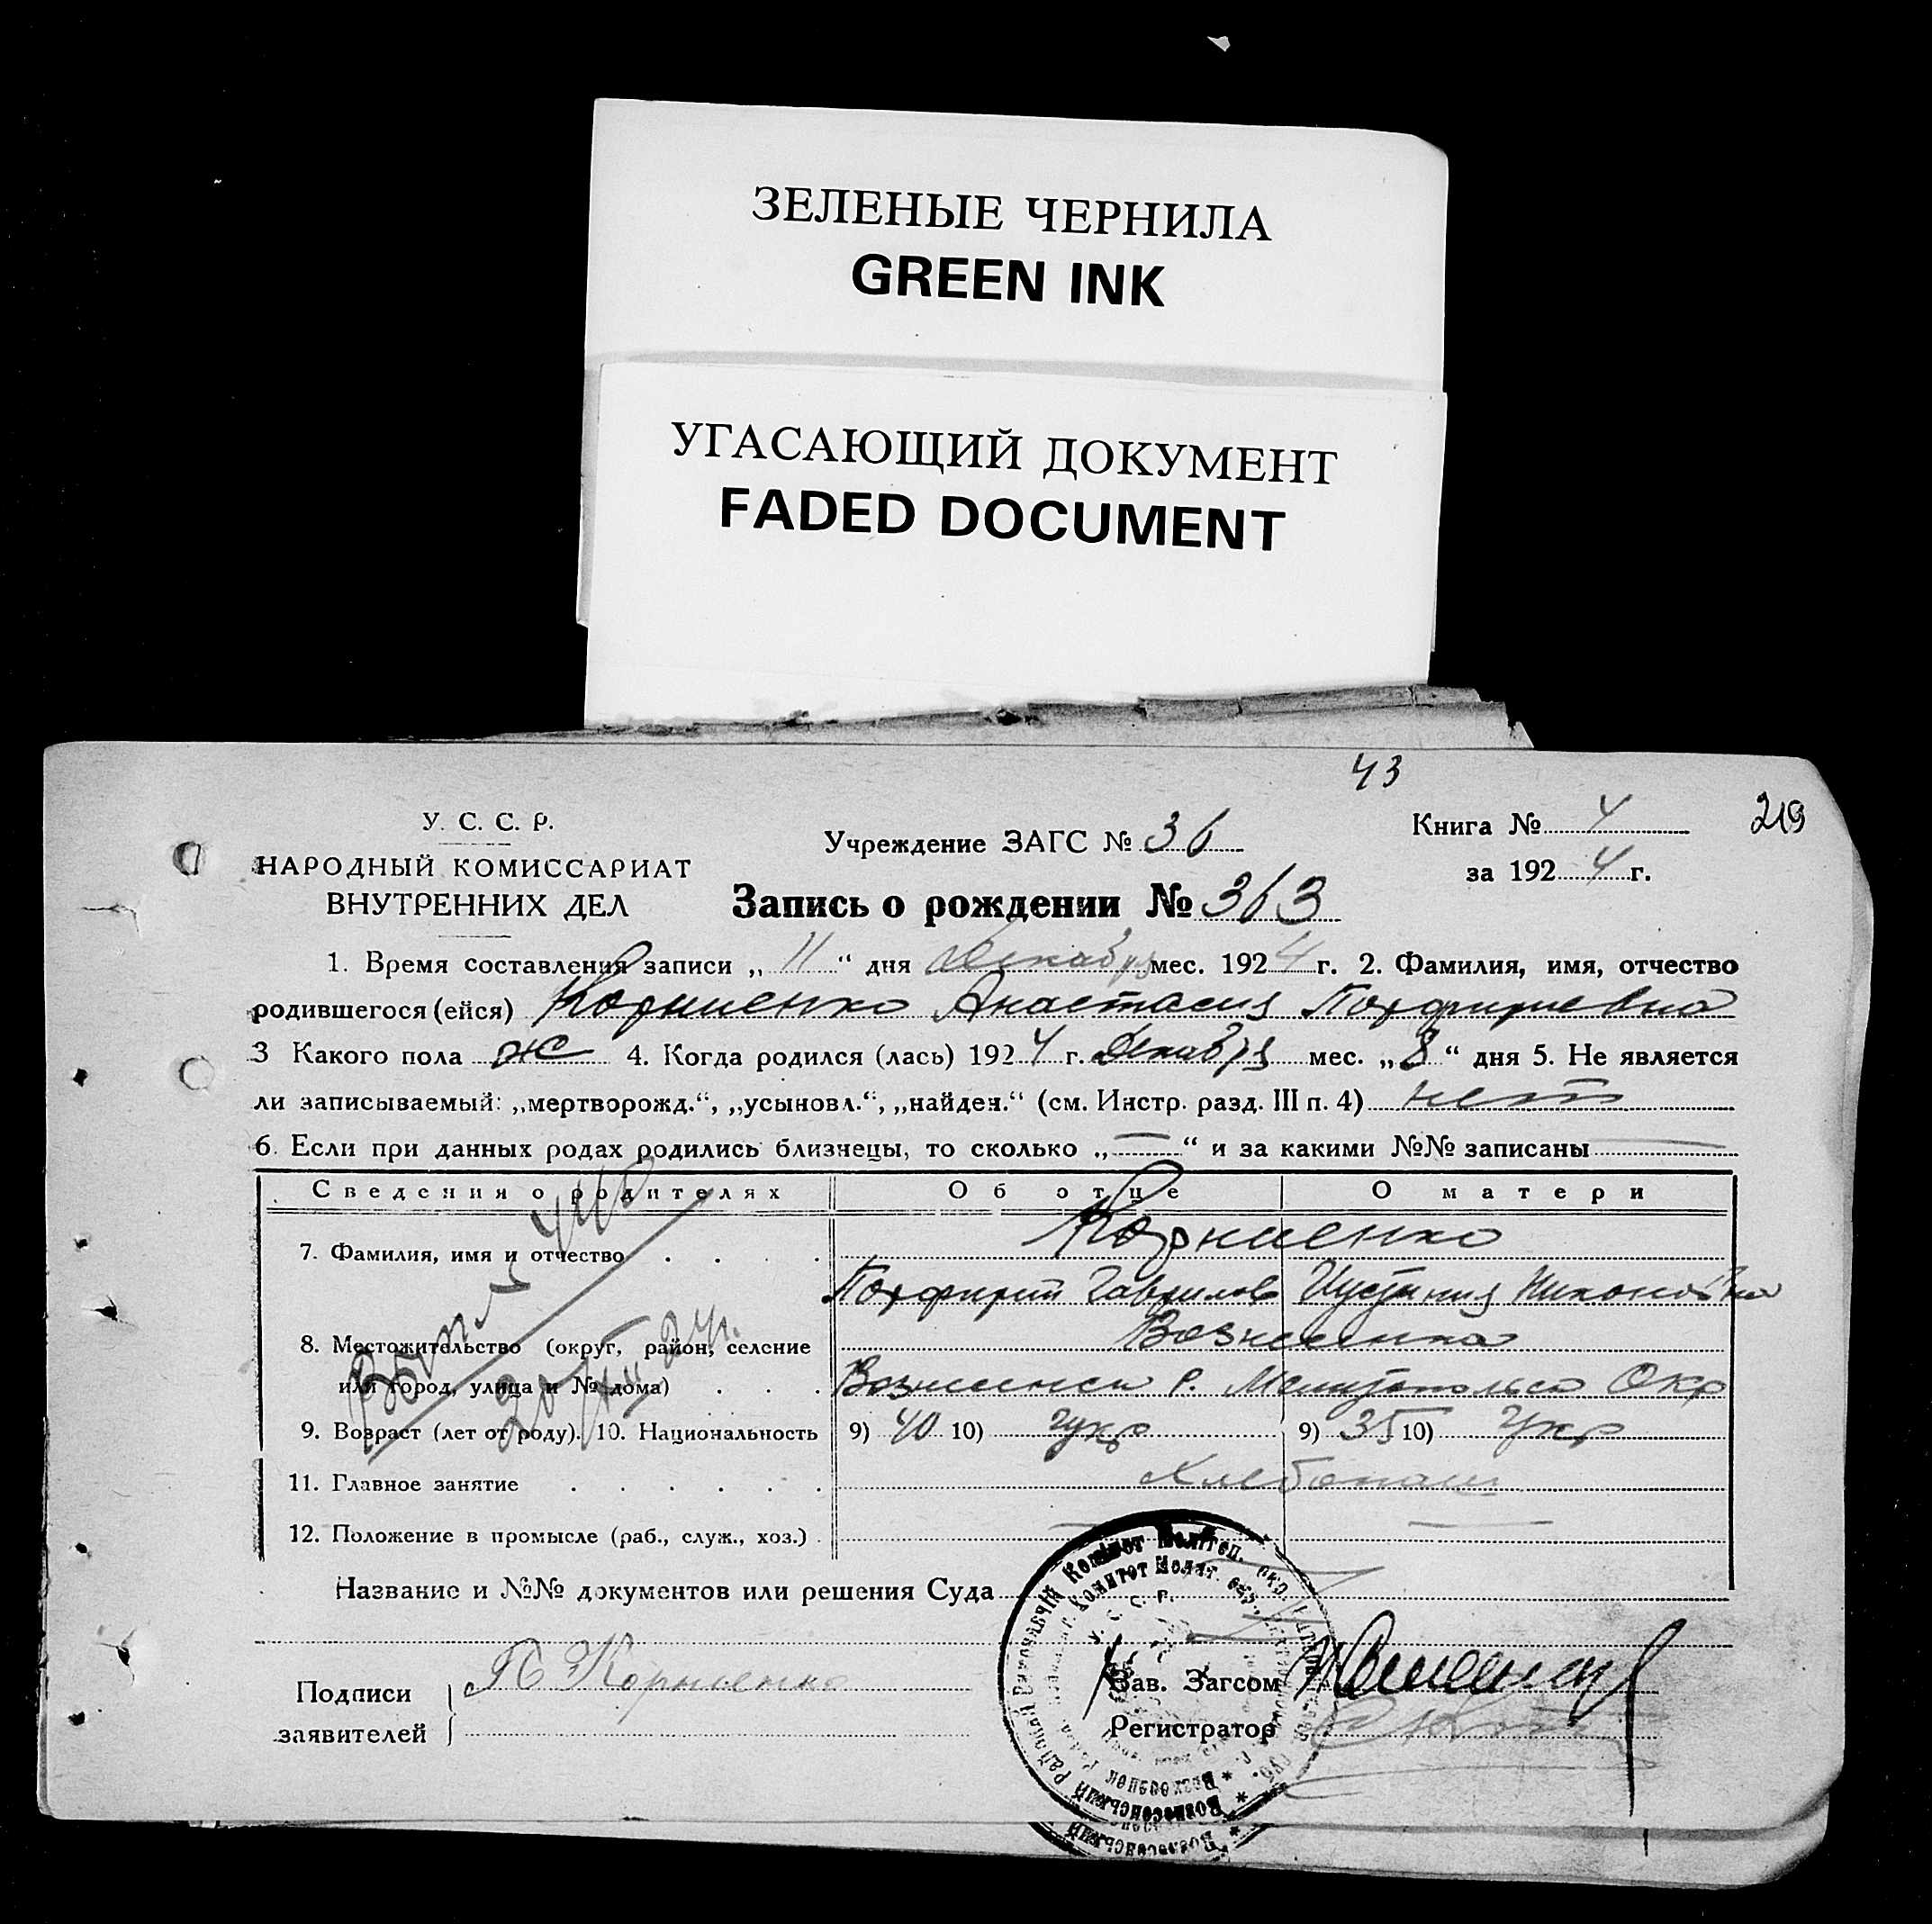 ЗЕЛЕНЫЕ ЧЕРНИЛА
GREEN INK
УГАСАЮЩИЙ ДОКУМЕНТ
FADED DOCUMENT
43
219
У. С. С. Р.
НАРОДНЫЙ КОМИССАРИАТ
ВНУТРЕННИХ ДЕЛ
Учреждение ЗАГС № 36
Книга № 4
за 1924 г.
Запись о рождении № 363
1. Время составления записи „ 11 “ дня Декабря мес. 1924 г. 2. Фамилия, имя, отчество
родившегося (ейся) Корниенко Анастасия Порфириевна
3 Какого пола ж 4. Когда родился (лась) 1924 г. Декабря мес. „ 8 “ дня 5. Не является
ли записываемый: „мертворожд.“, „усыновл.“, „найден.“ (см. Инстр. разд. III п. 4) нет
6. Если при данных родах родились близнецы, то сколько „ — “ и за какими №№ записаны —
Сведения о родителях Об отце О матери
7. Фамилия, имя и отчество Корниенко
Порфирий Гаврилов Иустиния Никоновна
8. Местожительство (округ, район, селение Вознесенка
или город, улица и № дома) Вознесенск р. Мелитопольск Окр
9. Возраст (лет от роду). 10. Национальность 9) 40 10) Укр 9) 35 10) Укр
11. Главное занятие Хлебопаш
12. Положение в промысле (раб., служ., хоз.) — —
Название и №№ документов или решения Суда
Подписи П Корниенко
заявителей
Зав. Загсом
Регистратор
У. С. С. Р.